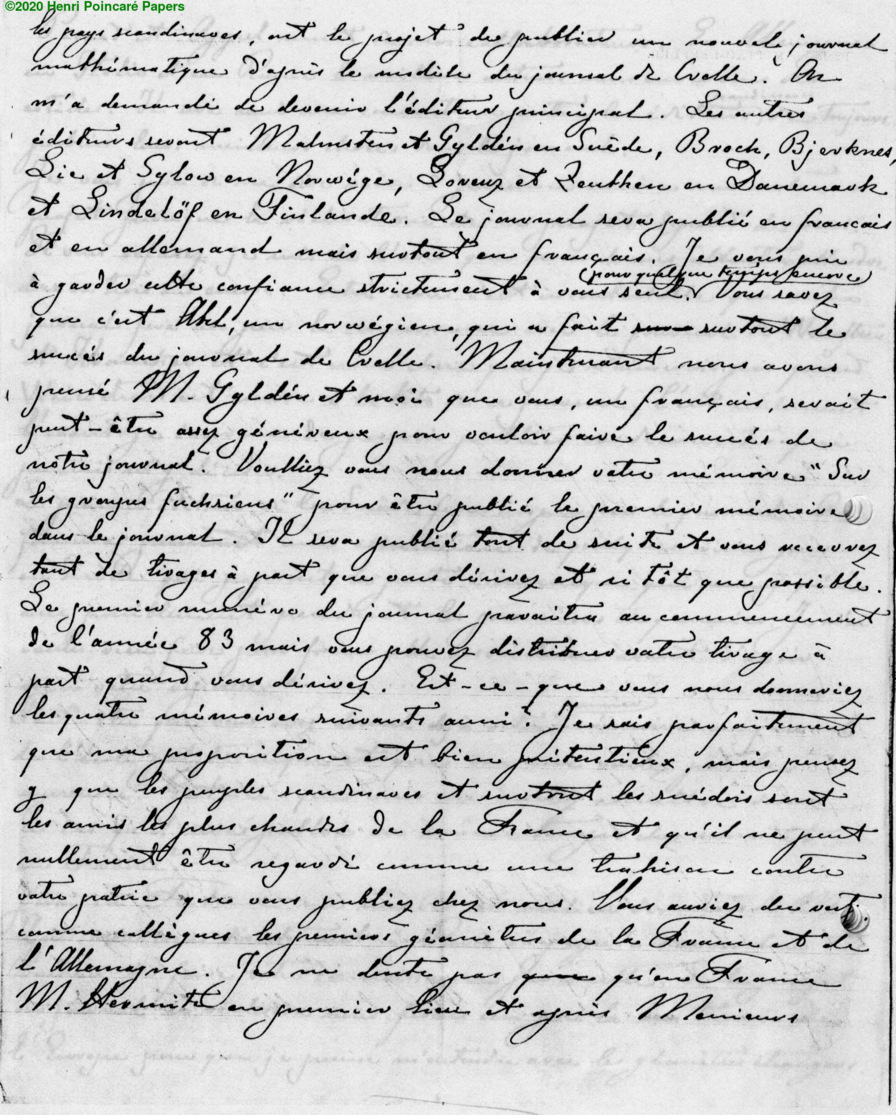 ©2020 Henri Poincaré Papers
les pays scandinaves, ont le projet de publier un nouvele journal
mathématique d'après le modèle du journal de Crelle. On
m'a demandé de devenir l'éditeur principal. Les autres
éditeurs seront Malmsten et Gyldén en Suède, Broch, Bjerknes,
Lie et Sylow en Norwége, Lorenz et Zeuthen en Danemark
et Lindelöf en Finlande. Le journal sera publié en français
et en allemand mais surtout en français. Je vous prie
(pour quelque temps encore)
à garder cette confiance strictement à vous seul. Vous savez
que c'est Abel, un norwégien, qui a fait surtout le
succés du journal de Crelle. Maintenant nous avons
pensé M. Gyldén et moi que vous, un français, serait
peut-être assez généreux pour vouloir faire le succés de
notre journal. Voulliez vous nous donner votre mémoire "Sur
les groupes fuchsiens" pour être publié le premier mémoire
dans le journal. Il sera publié tout de suite et vous recevrez
tant de tirages à part que vous désirez et si tôt que possible.
Le premier numéro du journal paraitra au commencement
de l'année 83 mais vous pouvez distribuer votre tirage à
part quand vous désirez. Est-ce-que vous nous donneriez
les quatre mémoires suivants aussi? Je sais parfaitement
que ma proposition est bien prétentieux, mais pensez
y que les peuples scandinaves et surtout les suédois sont
les amis les plus chauds de la France et qu'il ne peut
nullement être regardé comme une trahison contre
votre patrie que vous publiez chez nous. Vous auriez du reste
comme collègues les premiers géomètres de la France et de
l'Allemagne. Je ne doute pas qu'en France
M. Hermite en premier lieu et après Messieurs